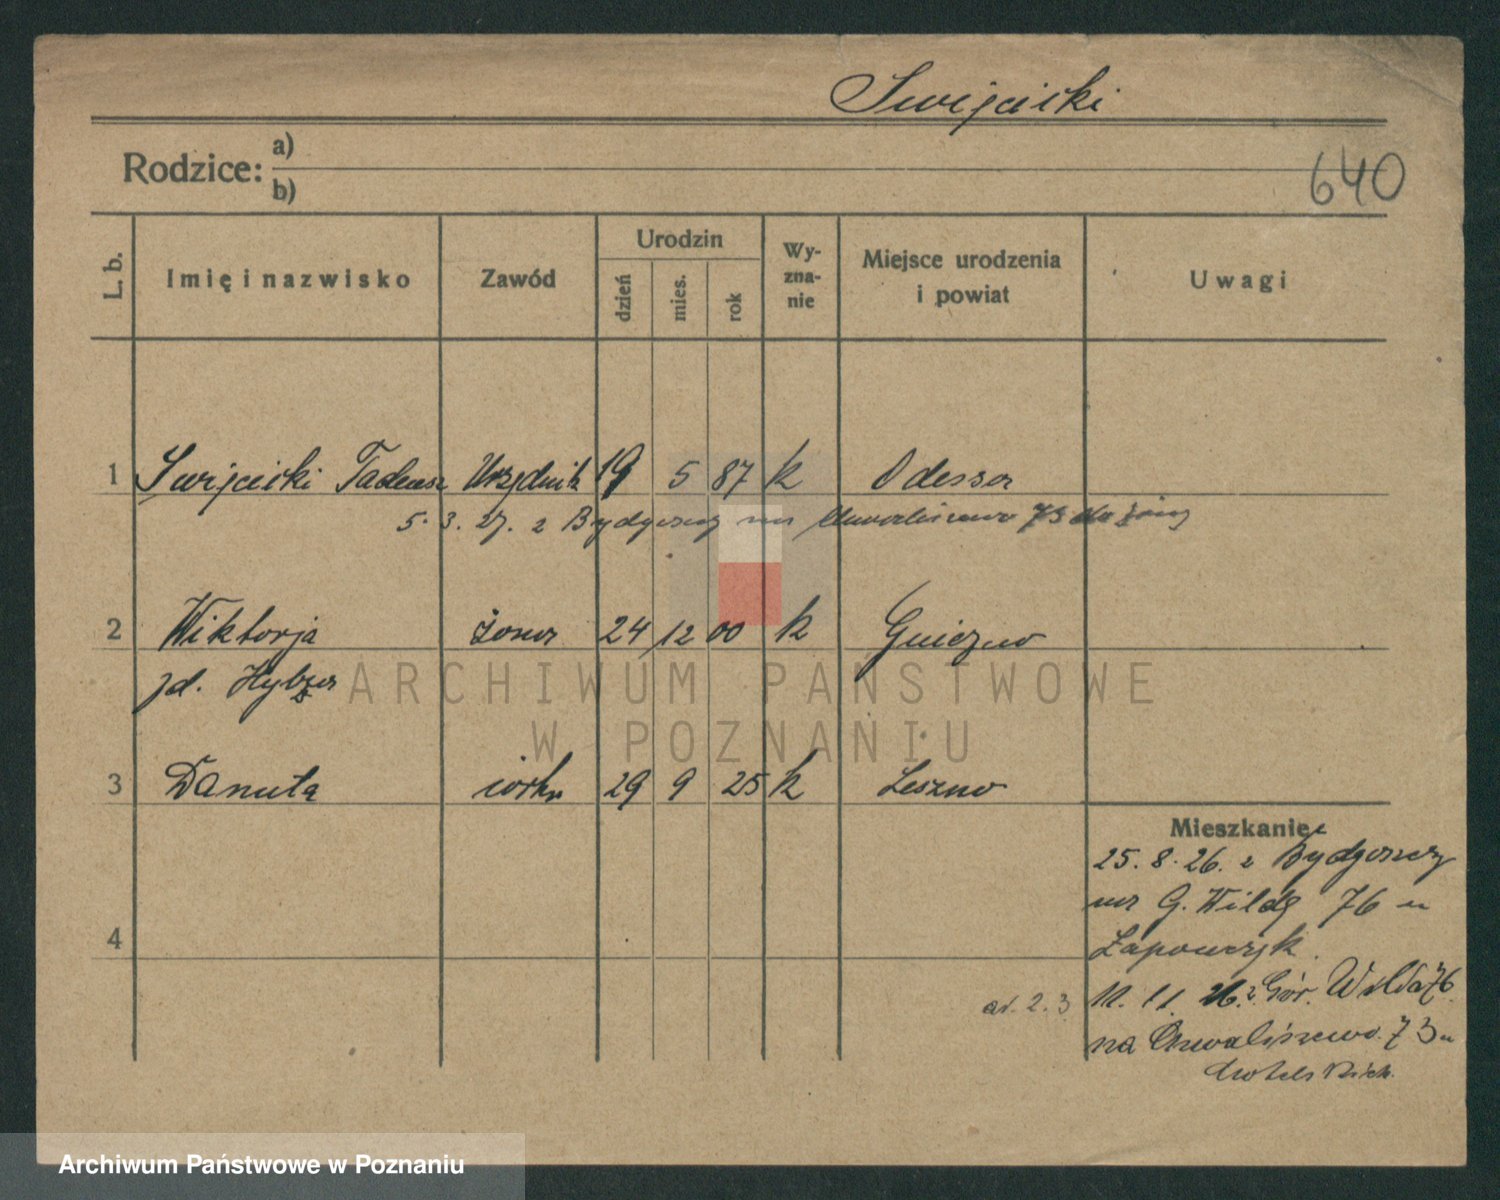 Święcicki
Rodzice: a)
b)
640
L. b.
Imię i nazwisko
Zawód
Urodzin
dzień
mies.
rok
Wy-
zna-
nie
Miejsce urodzenia
i powiat
Uwagi
1 Święcicki Tadeusz Urzędnik 19 5 87 k Odessa
5. 3. 27. z Bydgoszcz na Chwaliszewo 73 do żony
2 Wiktorja żona 24 12 00 k Gniezno
zd.
3 Danuta córka 29 9 25 k Leszno
Mieszkanie
25. 8. 26. z Bydgoszczy
na G. Wildę 76 u
4
ad. 2. 3 11. 26. z Gór. Wilda 76
na Chwaliszewo. 73 u
ARCHIWUM PAŃSTWOWE
W POZNANIU
Archiwum Państwowe w Poznaniu